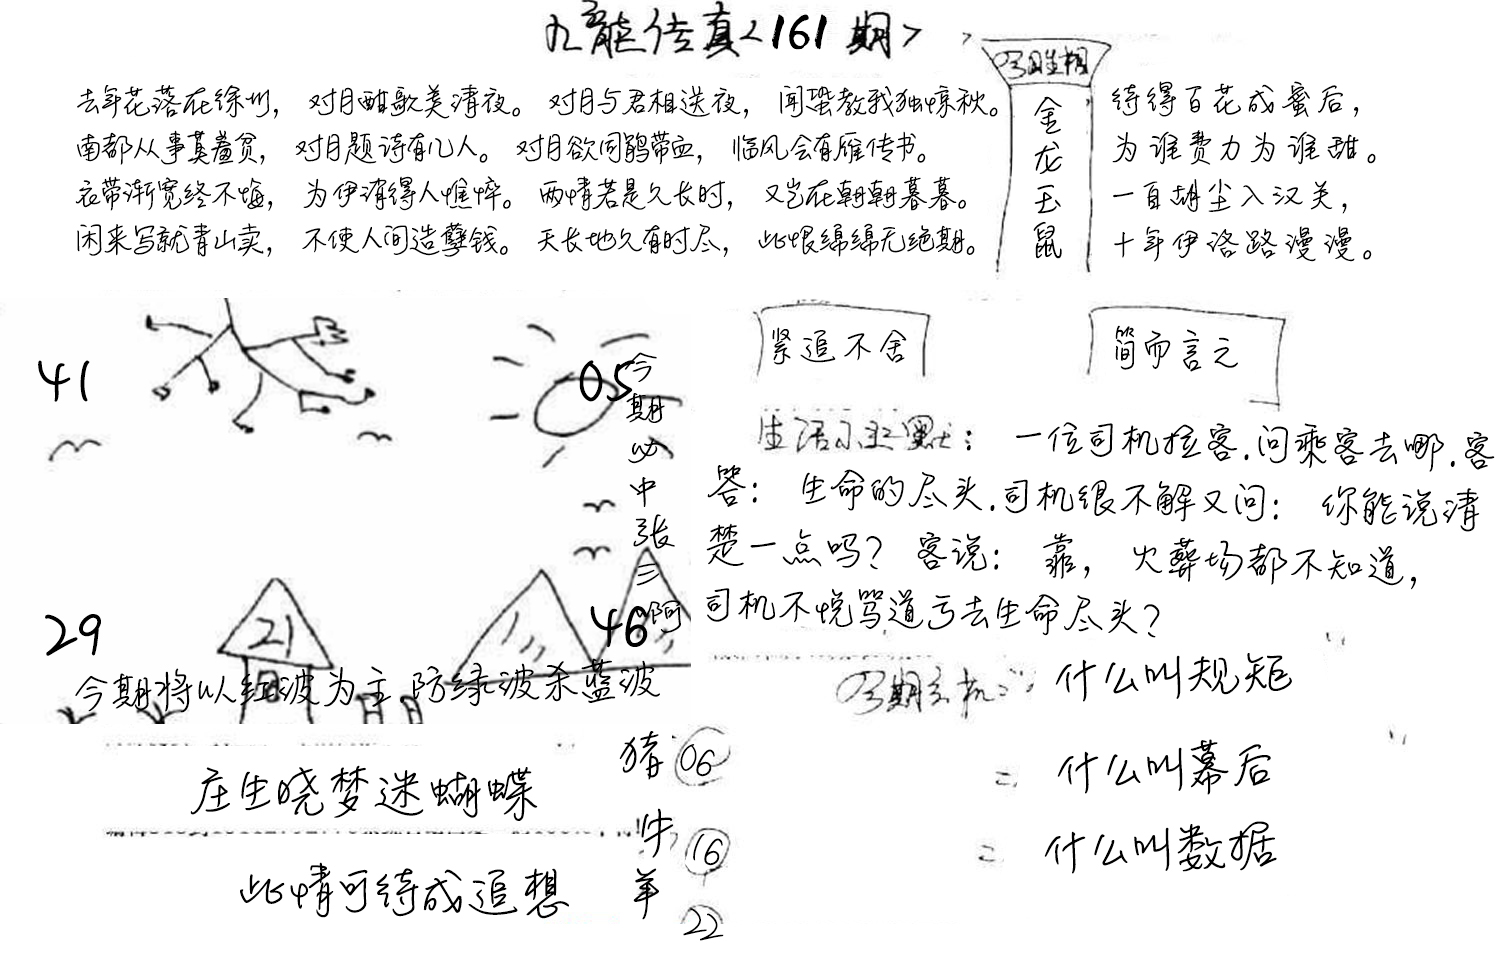 九龍传真<161期>
今期生相
金龙玉鼠
去年花落在徐州，对月酣歌美清夜。对月与君相送夜，闻蛩教我独惊秋。
南都从事莫羞贫，对月题诗有几人。对月欲问鹃带血，临风会有雁传书。
衣带渐宽终不悔，为伊消得人憔悴。两情若是久长时，又岂在朝朝暮暮。
闲来写就青山卖，不使人间造孽钱。天长地久有时尽，此恨绵绵无绝期。
待得百花成蜜后，
为谁费力为谁甜。
一自胡尘入汉关，
十年伊洛路漫漫。
41
05
29
21
46
今期必中张三啊
今期将以红波为主防绿波杀蓝波
紧追不舍
简而言之
生活小幽默：一位司机拉客.问乘客去哪.客
答：生命的尽头.司机很不解又问：你能说清
楚一点吗？客说：靠，火葬场都不知道，
司机不悦骂道亏去生命尽头？
今期玄机：什么叫规矩
= 什么叫幕后
= 什么叫数据
庄生晓梦迷蝴蝶
此情可待成追想
猪 06
牛 16
羊 22